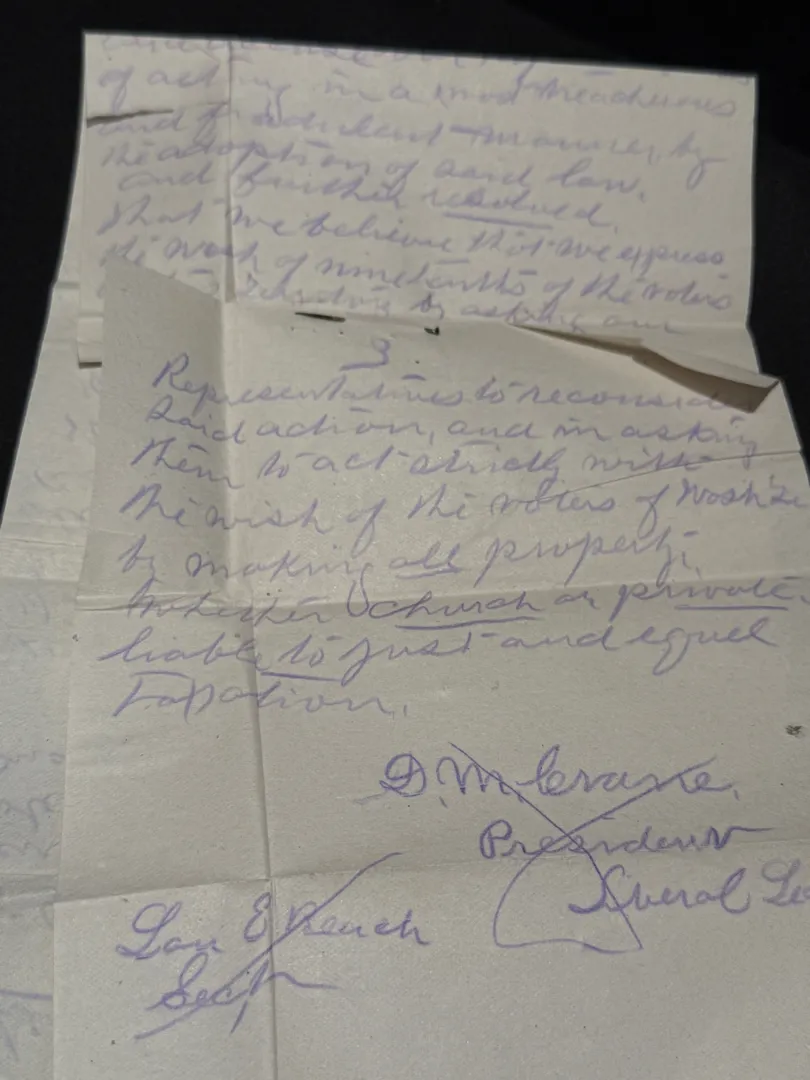 of acting in a most treacherous
and fradulent manner, by
the adoption of said law.
and further resolved.
that we believe that we express
the wish of ninetenths of the voters
by asking our
3.
Representatives to reconsider
said action, and in asking
them to act strictly with
the wish of the voters of
by making all property,
whether church or private
liable to just and equel
Taxation.
D. M.
President
Liberal
Sect